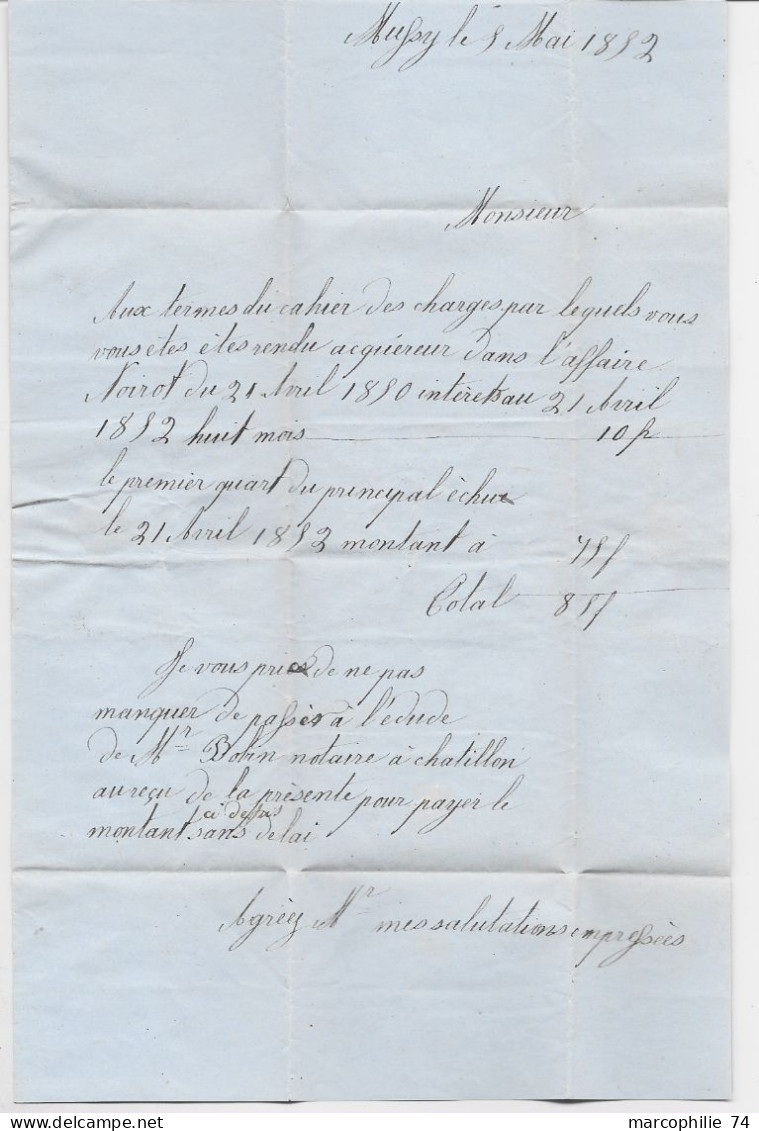 Mussy le 5 Mai 1852
Monsieur
Aux termes du cahier des charges par lequels vous
vous êtes êtes rendu acquéreur dans l'affaire
Noirot du 21 Avril 1850 intérets au 21 Avril
1852 huit mois 10 f
le premier quart du principal échue
le 21 Avril 1852 montant à 75 f
Total 85 f
Je vous pries de ne pas
manquer de passèr à l'édude
de Mr Bobin notaire à chatillon
au reçu de la prèsente pour payer le
ci dessus
montant sans delai
Agrèez Mr mes salutations empressèes
marcophilie 74